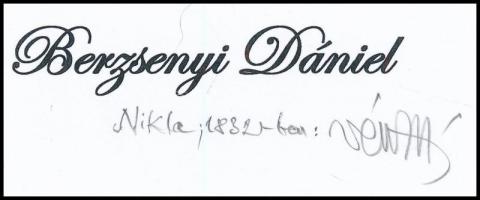 Berzsenyi Dániel
Nikla, 1832-ben: